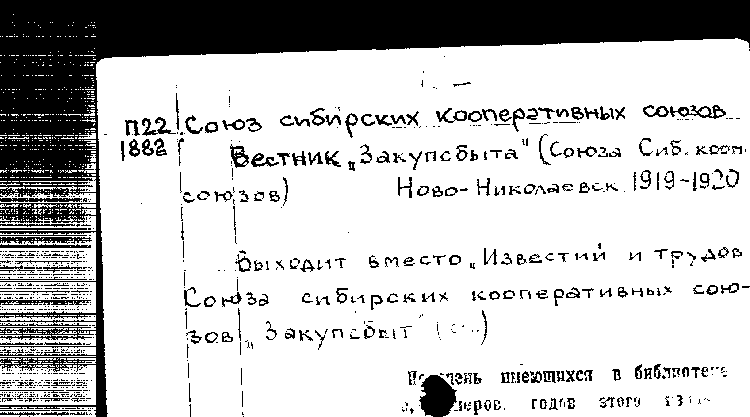 П22 Союз сибирских кооперативных союзов
1882 Вестник „Закупсбыта" (Союза Сиб. кооп.
союзов) Ново-Николаевск 1919-1920
Выходит вместо „Известий и трудов
Союза сибирских кооперативных сою-
зов „Закупсбыт"
имеющихся в библиотеке
годов этого